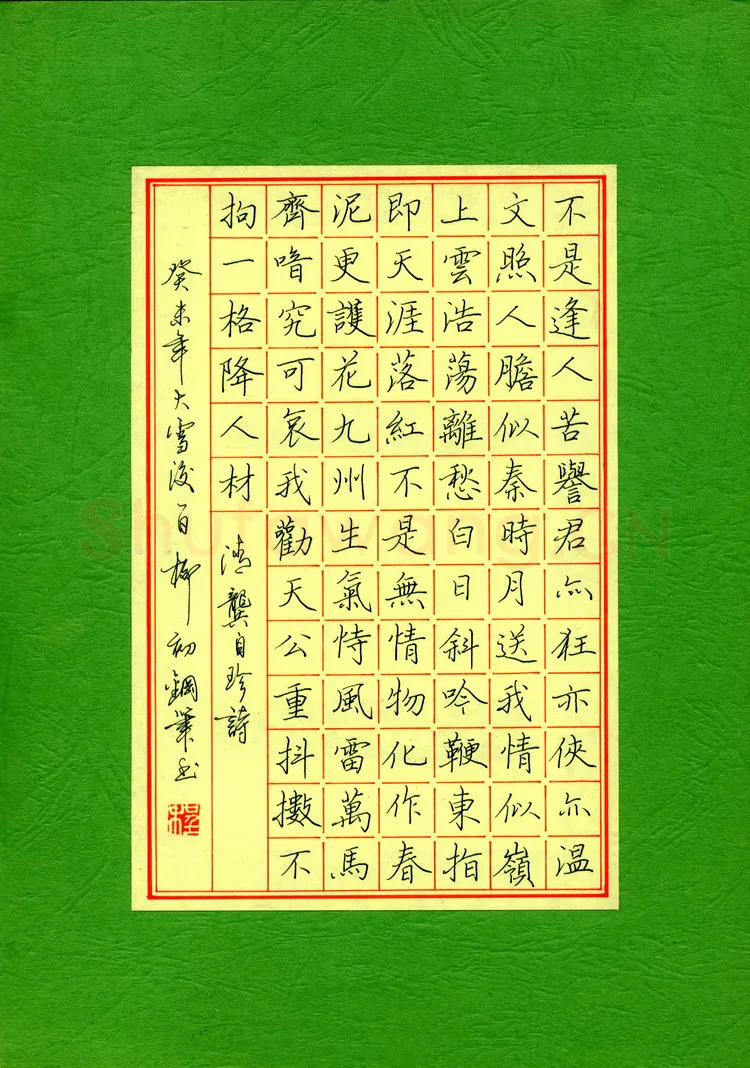 不是逢人苦譽君亦狂亦俠亦溫
文照人膽似秦時月送我情似嶺
上雲浩蕩離愁白日斜吟鞭東指
即天涯落紅不是無情物化作春
泥更護花九州生氣恃風雷萬馬
齊喑究可哀我勸天公重抖擻不
拘一格降人材 清龔自珍詩
癸未年大雪後百柳初鋼筆书
Shufawang.CN